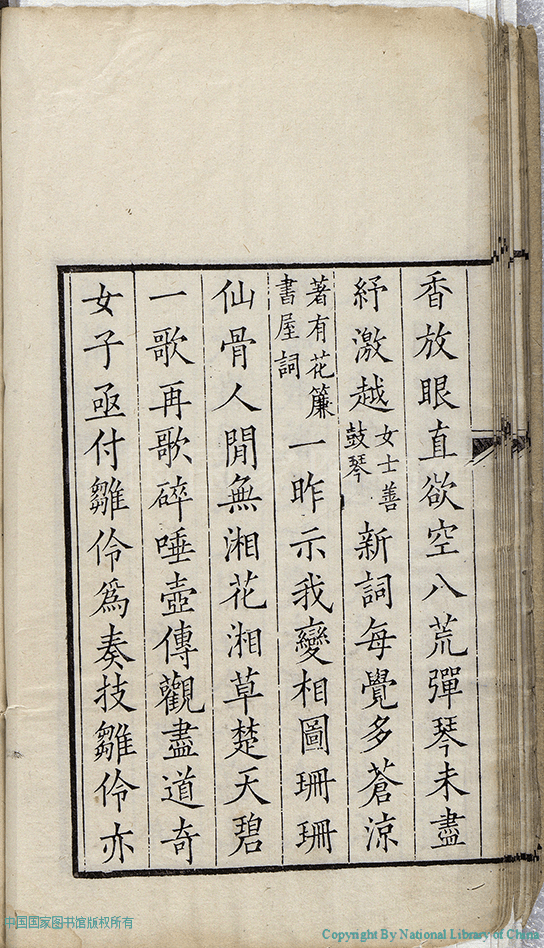 香放眼直欲空八荒彈琴未盡
紓激越女士善鼓琴新詞每覺多蒼涼
著有花簾書屋詞一昨示我變相圖珊珊
仙骨人閒無湘花湘草楚天碧
一歌再歌碎唾壺傳觀盡道奇
女子亟付雛伶爲奏技雛伶亦
中国国家图书馆版权所有
Copyright By National Library of China